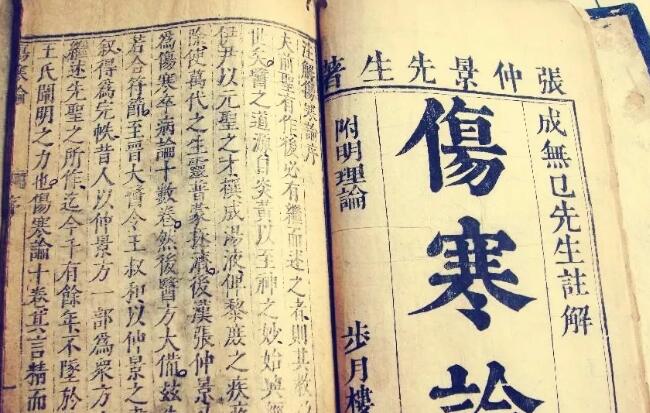 張仲景先生著
成無已先生註解
傷寒論
附明理論
步月樓
注解傷寒論序
夫前聖有作後必有繼而述之者則其教
世矣醫之道源自炎黃以至神之妙始興
伊尹以元聖之才撰成湯液俾黎庶之疾
除使萬代之生靈普蒙拯濟後漢張仲景
為傷寒卒病論十數卷然後醫方大備茲
若合符節至晉太醫令王叔和以仲景之
叙得為完帙昔人以仲景方一部為衆方
繼述先聖之所作迄今千有餘年不墜於
王氏闡明之力也傷寒論十卷其言精而
傷寒論 序